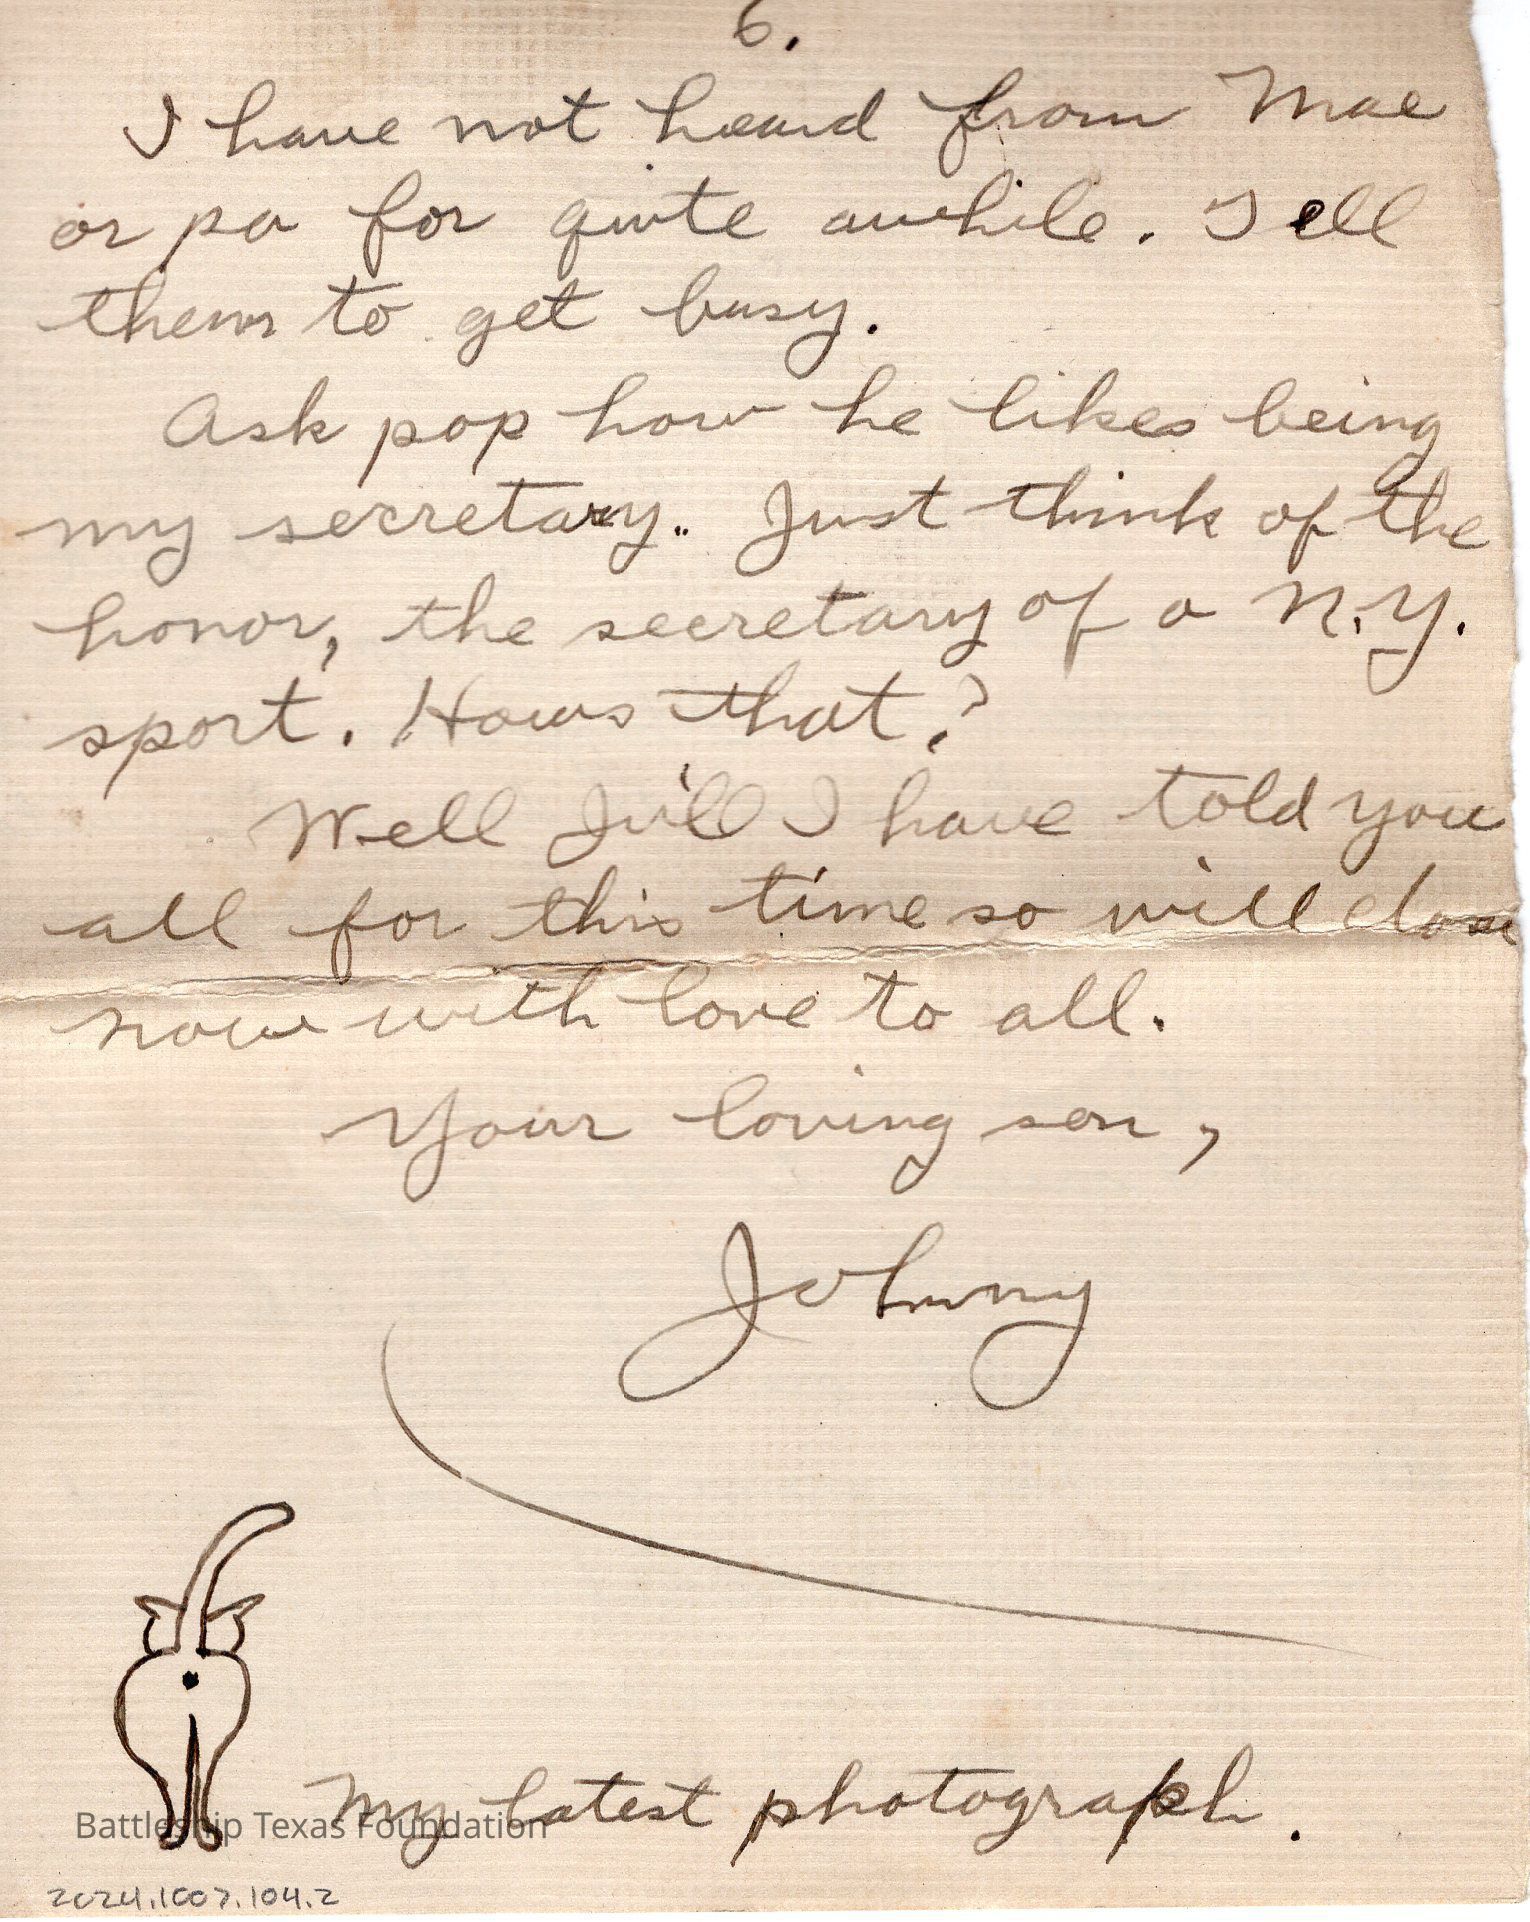 6.
I have not heard from Mae
or pa for quite awhile. Tell
them to get busy.
Ask pop how he likes being
my secretary. Just think of the
honor, the secretary of a N.Y.
sport. Hows that?
Well I have told you
all for this time so will close
now with love to all.
Your loving son,
Johnny
My latest photograph.
Battleship Texas Foundation
2024.1007.104.2